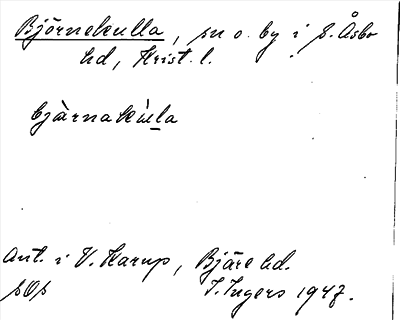 Björnekulla, sn o. by i S. Åsbo
hd, Krist. l.
bjärnakùla
Ant. i V. Karup, Bjäre hd.
I. Ingers 1947.